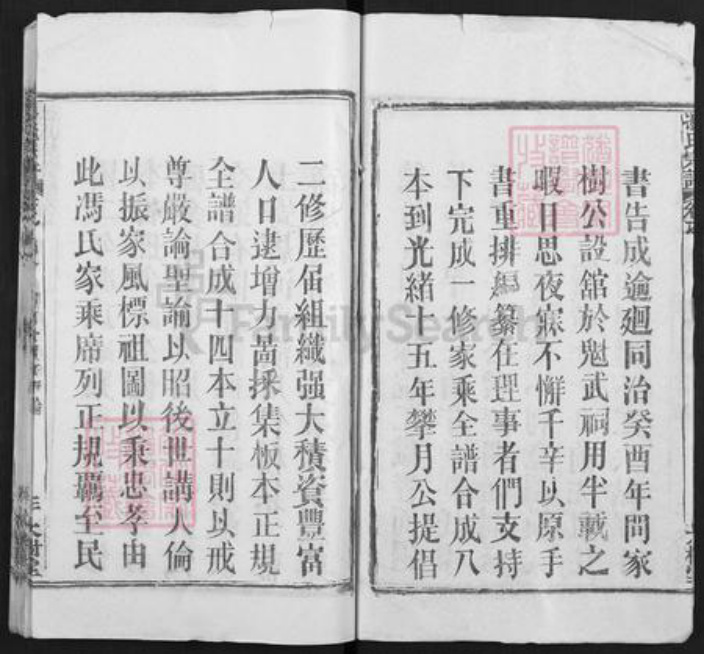 書告成逾廻同治癸酉年間家
樹公設舘於勉武祠用半載之
暇日思夜寐不懈千辛以原手
書重排編纂在理事者們支持
下完成一修家乘全譜合成八
本到光緒十五年攀月公提倡
二修歷届組織强大積資豐富
人口逮增力啚採集板本正規
全譜合成十四本立十則以戒
尊嚴論聖諭以昭後世講人倫
以振家風標祖圖以秉忠孝由
此馮氏家乘席列正規覊至民
FamilySearch